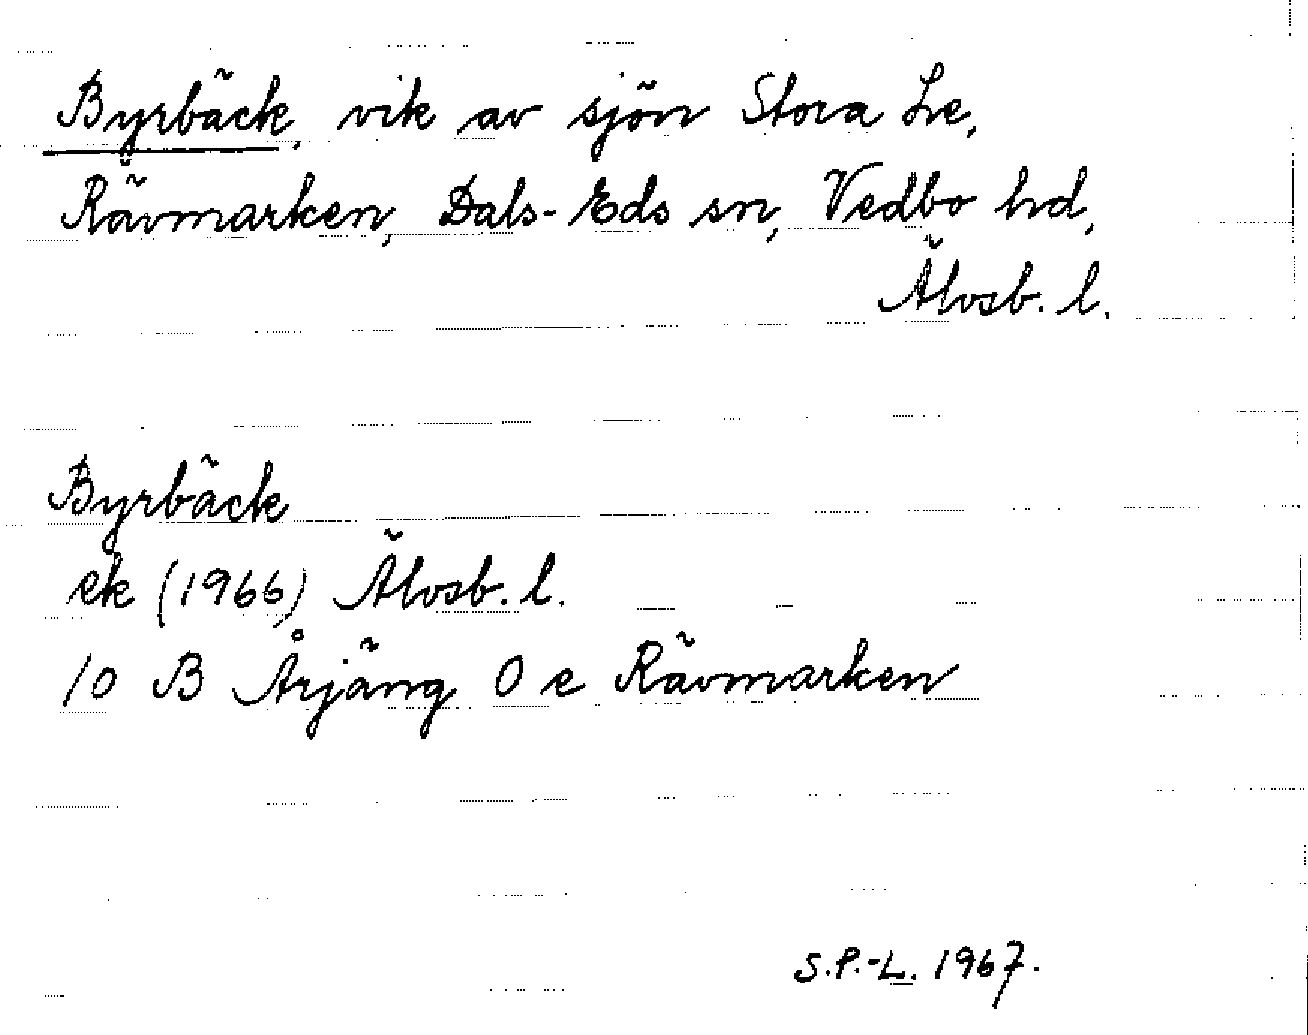 Byrbäck, vik av sjön Stora Le,
Rävmarken, Dals-Eds sn, Vedbo hd,
Älvsb. l.
Byrbäck
ek (1966) Älvsb. l.
10 B Årjäng 0 e Rävmarken
S.P.-L. 1967.